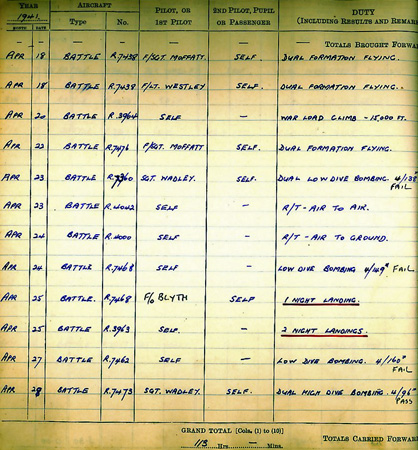 YEAR AIRCRAFT PILOT, OR 1ST PILOT 2ND PILOT, PUPIL OR PASSENGER DUTY (INCLUDING RESULTS AND REMAR
1941. MONTH DATE Type No.
— — — — — TOTALS BROUGHT FORWA
APR 18 BATTLE R.7438 F/SGT. MOFFATT SELF. DUAL FORMATION FLYING.
APR 18 BATTLE R.7438 F/LT. WESTLEY SELF. DUAL FORMATION FLYING.
APR 20 BATTLE R.3964 SELF — WAR LOAD CLIMB - 15000 FT.
APR 22 BATTLE R.7476 F/SGT. MOFFATT SELF. DUAL FORMATION FLYING.
APR 23 BATTLE R.7360 SGT. WADLEY. SELF. DUAL LOW DIVE BOMBING. 4/138" FAIL
APR 23 BATTLE R.4042 SELF — R/T - AIR TO AIR.
APR 24 BATTLE R.4000 SELF — R/T - AIR TO GROUND.
APR 24 BATTLE R.7468 SELF — LOW DIVE BOMBING 4/149" FAIL
APR 25 BATTLE. R.7468 F/O BLYTH SELF 1 NIGHT LANDING.
APR 25 BATTLE R.3963 SELF. — 2 NIGHT LANDINGS.
APR 27 BATTLE R.7462 SELF — LOW DIVE BOMBING. 4/160" FAIL
APR 28 BATTLE R.7473 SGT. WADLEY. SELF. DUAL HIGH DIVE BOMBING. 4/96" PASS
GRAND TOTAL [Cols. (1) to (10)]
113 Hrs. — Mins.
TOTALS CARRIED FORWAR